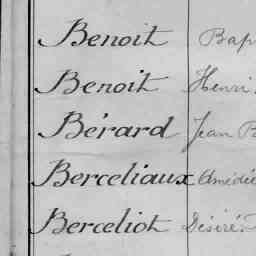 Benoit Bap
Benoit Henri
Bérard Jean B
Berceliaux Amédée
Berceliot Désiré